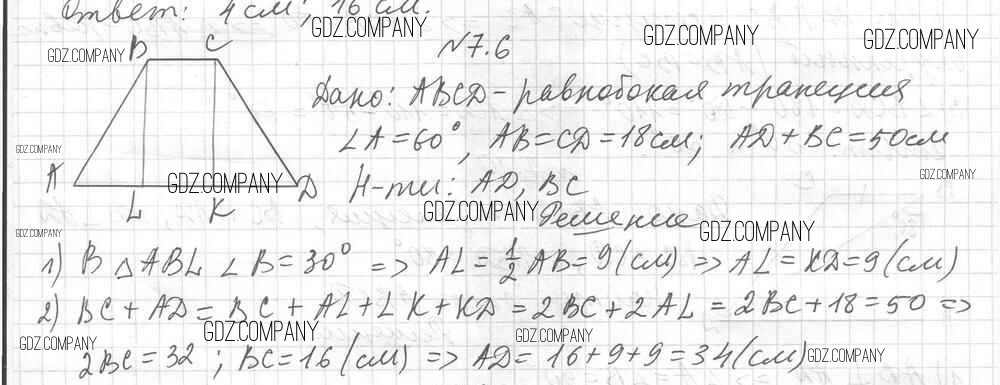 Ответ: 4 см; 16 см.
GDZ.COMPANY
GDZ.COMPANY
GDZ.COMPANY
GDZ.COMPANY
B C
№7.6
Дано: ABCD - равнобокая трапеция
∠A = 60°, AB = CD = 18 см; AD + BC = 50 см
GDZ.COMPANY
GDZ.COMPANY
A D
GDZ.COMPANY
Н-ти: AD, BC
L K
GDZ.COMPANY
Решение
GDZ.COMPANY
GDZ.COMPANY
1) В △ABL ∠B = 30° => AL = 1/2 AB = 9 (см) => AL = KD = 9 (см)
2) BC + AD = BC + AL + LK + KD = 2BC + 2AL = 2BC + 18 = 50 =>
GDZ.COMPANY
GDZ.COMPANY
GDZ.COMPANY
2BC = 32; BC = 16 (см) => AD = 16 + 9 + 9 = 34 (см)
GDZ.COMPANY